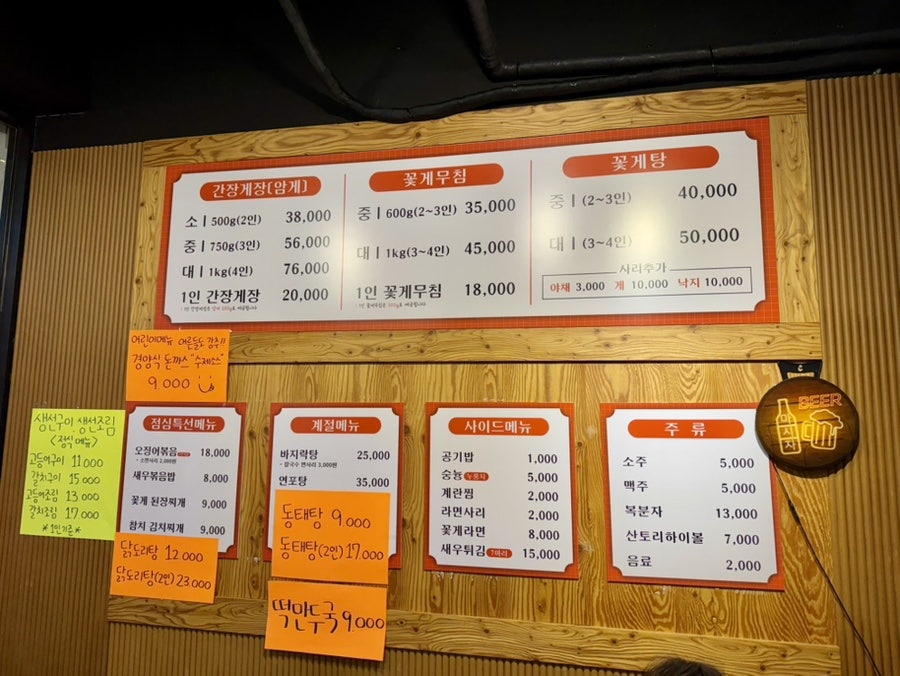 간장게장(암게)
소 | 500g(2인) 38,000
중 | 750g(3인) 56,000
대 | 1kg(4인) 76,000
1인 간장게장 20,000
꽃게무침
중 | 600g(2~3인) 35,000
대 | 1kg(3~4인) 45,000
1인 꽃게무침 18,000
꽃게탕
중 | (2~3인) 40,000
대 | (3~4인) 50,000
사리추가
야채 3,000 게 10,000 낙지 10,000
어린이메뉴 어른들도 강추!!
경양식 돈까스 "수제소스"
9.000
생선구이 생선조림
<점심메뉴>
고등어구이 11.000
갈치구이 15.000
고등어조림 13.000
갈치조림 17.000
*1인기준*
점심특선메뉴
오징어볶음 18,000
+ 소면사리 2,000원
새우볶음밥 8,000
꽃게 된장찌개 9,000
참치 김치찌개 9,000
닭도리탕 12.000
닭도리탕(2인) 23.000
계절메뉴
바지락탕 25,000
+ 칼국수 면사리 3,000원
연포탕 35,000
동태탕 9.000
동태탕(2인) 17.000
떡만두국 9.000
사이드메뉴
공기밥 1,000
숭늉 누룽지 5,000
계란찜 2,000
라면사리 2,000
꽃게라면 8,000
새우튀김 7마리 15,000
주 류
소주 5,000
맥주 5,000
복분자 13,000
산토리하이볼 7,000
음료 2,000
BEER
마시자